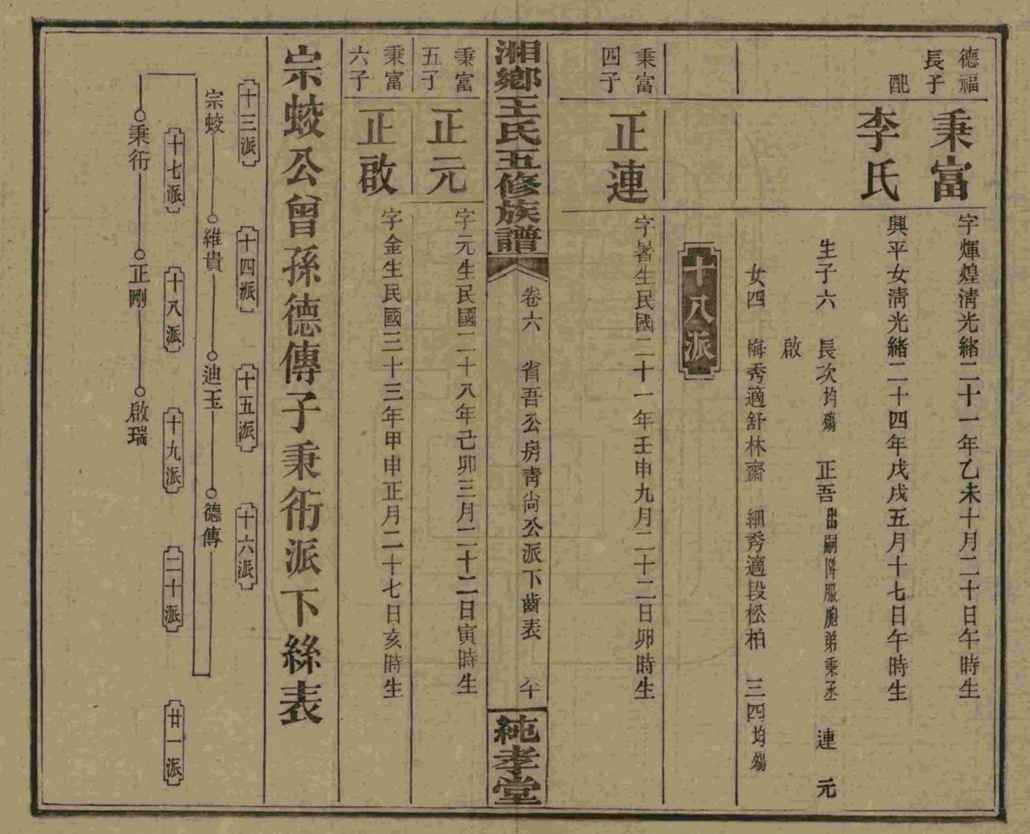 德福長子
秉富
字輝煌清光緒二十一年乙未十月二十日午時生
配
李氏
興平女清光緒二十四年戊戌五月十七日午時生
生子六 長次均殤 正吾出嗣降服胞弟秉丞 連 元
啟
女四 梅秀適舒林齋 細秀適段松柏 三四均殤
十八派
秉富四子
正連
字暑生民國二十一年壬申九月二十二日卯時生
湘鄉王氏五修族譜
卷六 省吾公房靑尙公派下齒表
純孝堂
秉富五子
正元
字元生民國二十八年己卯三月二十二日寅時生
秉富六子
正啟
字金生民國三十三年甲申正月二十七日亥時生
宗蛟公曾孫德傳子秉衕派下絲表
十三派 十四派 十五派 十六派
宗蛟 維貴 迪玉 德傳
十七派 十八派 十九派 二十派 廿一派
秉衕 正剛 啟瑞